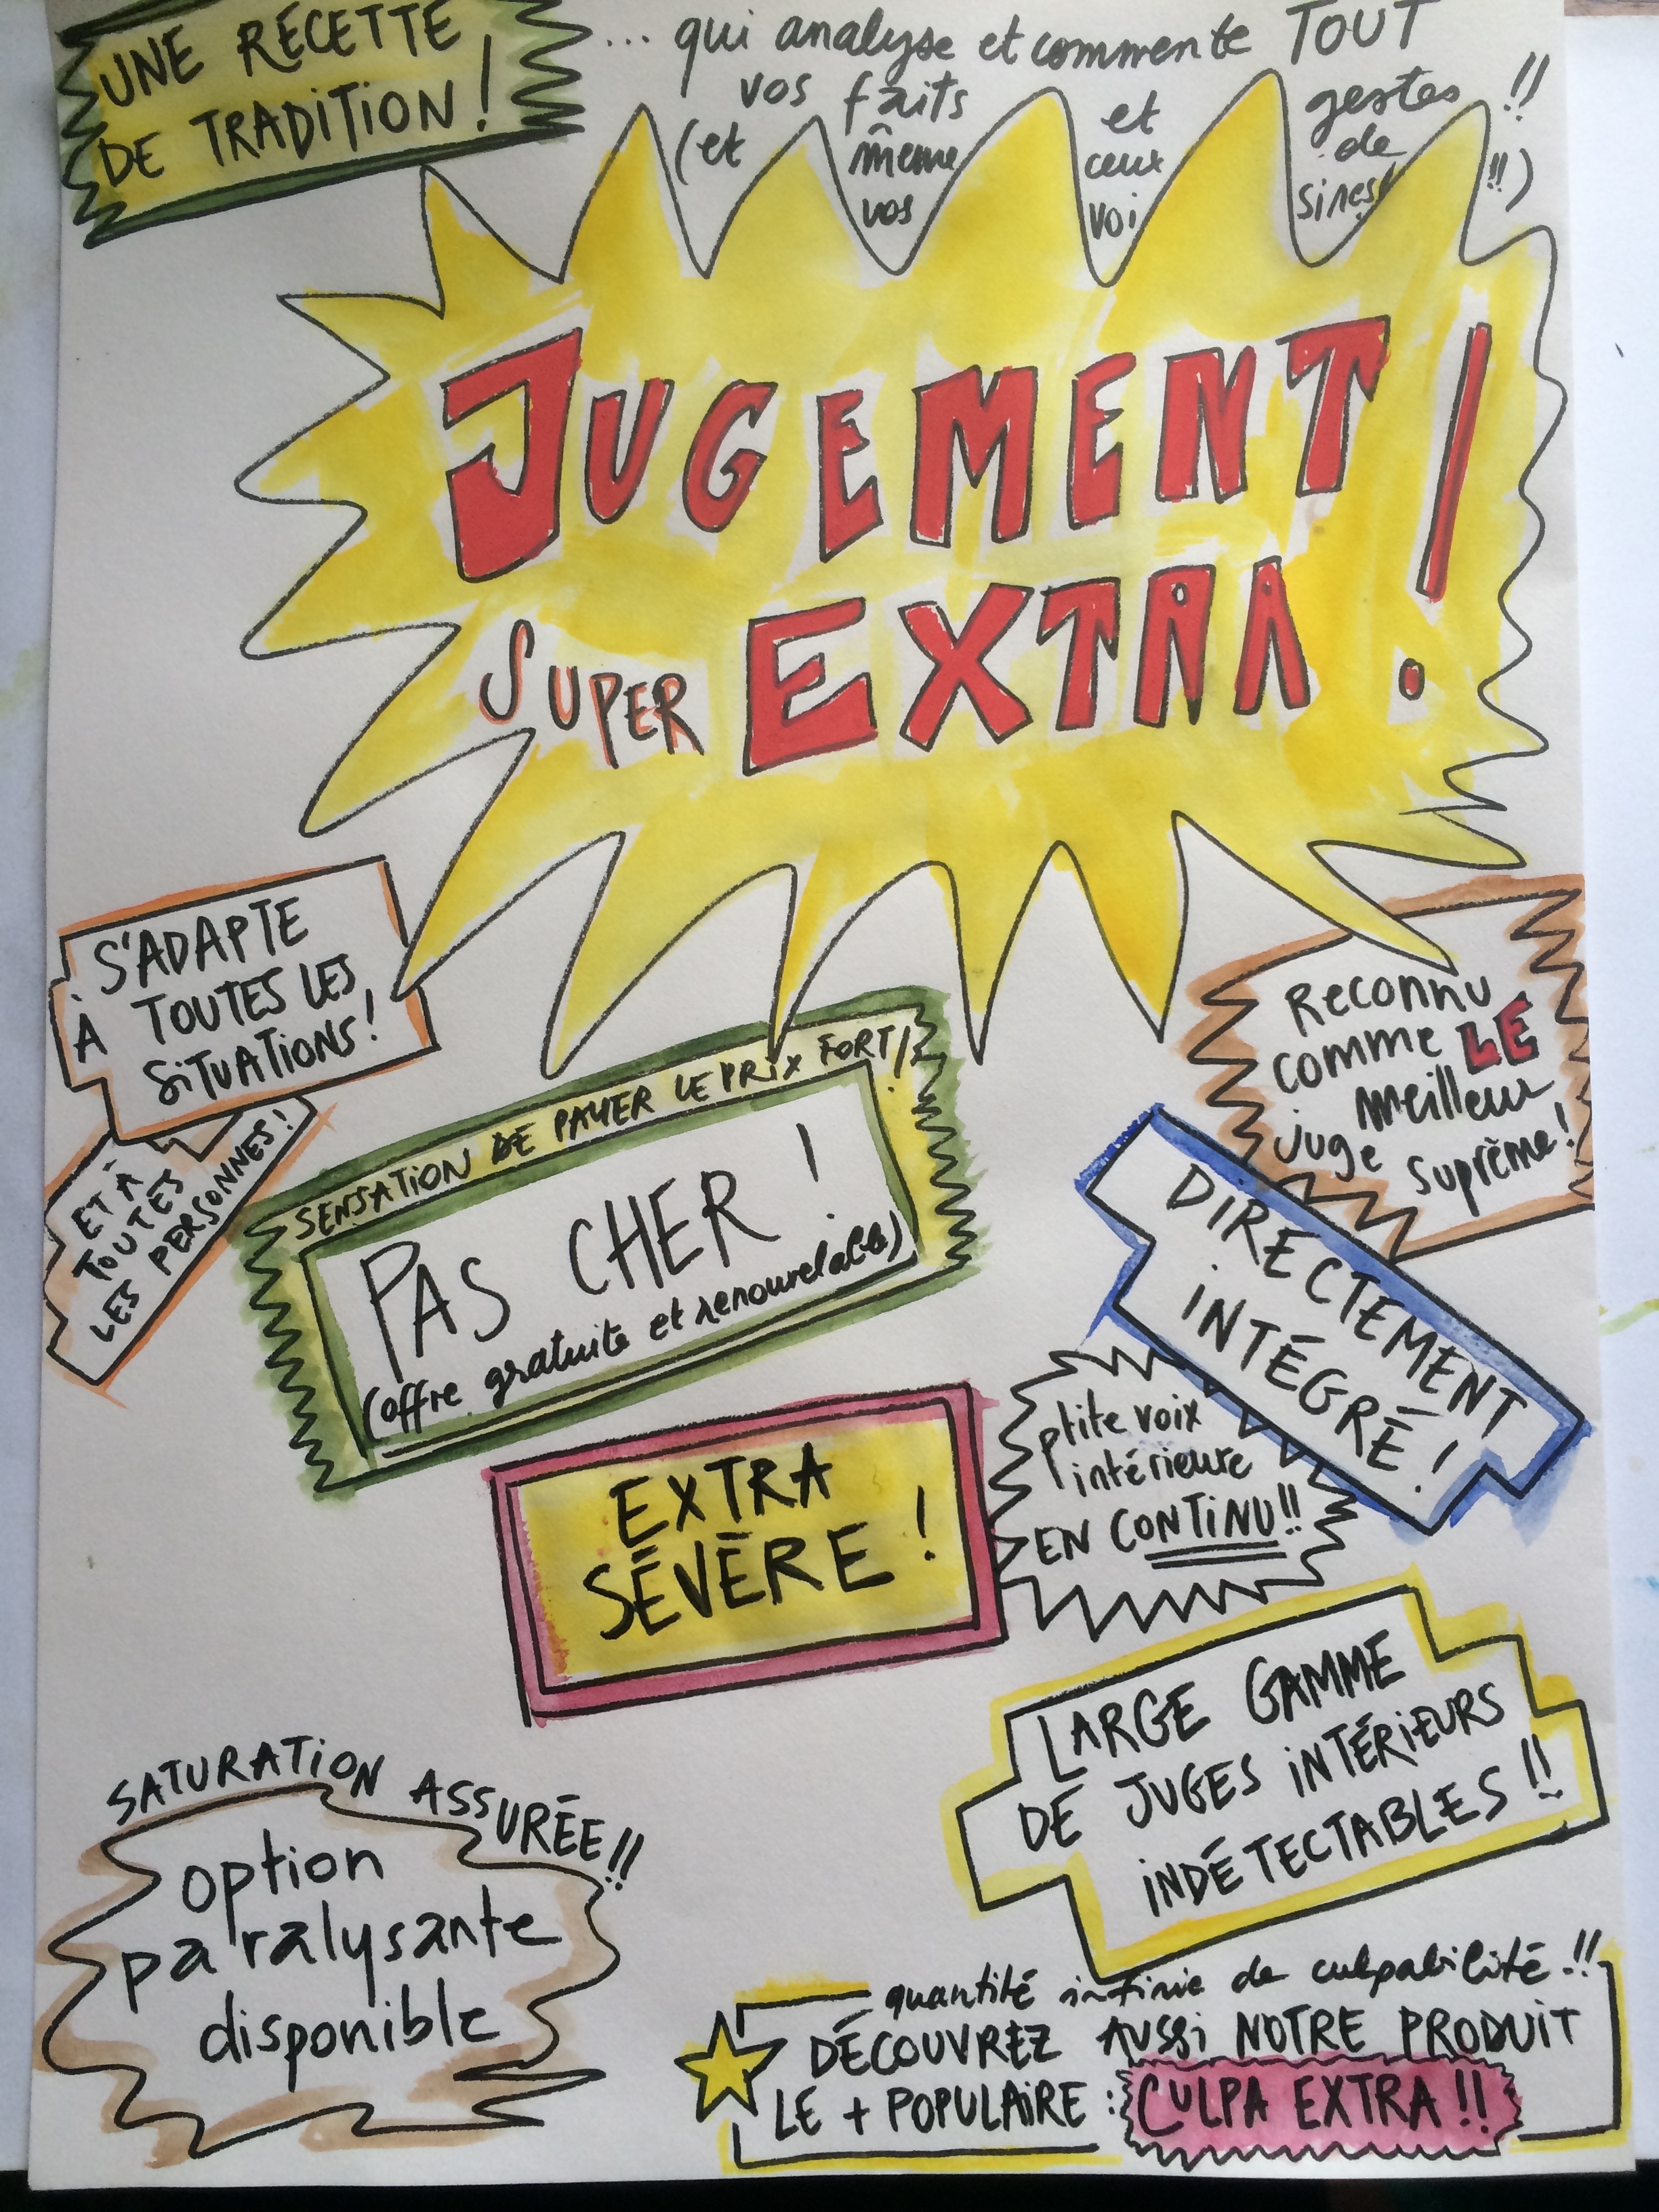 UNE RECETTE
DE TRADITION !
... qui analyse et commente TOUT
vos faits et gestes !!
(et même ceux de
vos voisines !!)
JUGEMENT
SUPER EXTRA !
S'ADAPTE
À TOUTES LES
SITUATIONS !
ET À
TOUTES
LES PERSONNES !
Reconnu
comme LE
meilleur
juge suprême !
SENSATION DE PAYER LE PRIX FORT !
PAS CHER !
(offre gratuite et renouvelable)
DIRECTEMENT
INTÉGRÉ !
ptite voix
intérieure
EN CONTINU !!
EXTRA
SÉVÈRE !
LARGE GAMME
DE JUGES INTÉRIEURS
INDÉTECTABLES !!
SATURATION ASSURÉE !!
option
paralysante
disponible
quantité infinie de culpabilité !!
DÉCOUVREZ AUSSI NOTRE PRODUIT
LE + POPULAIRE : CULPA EXTRA !!